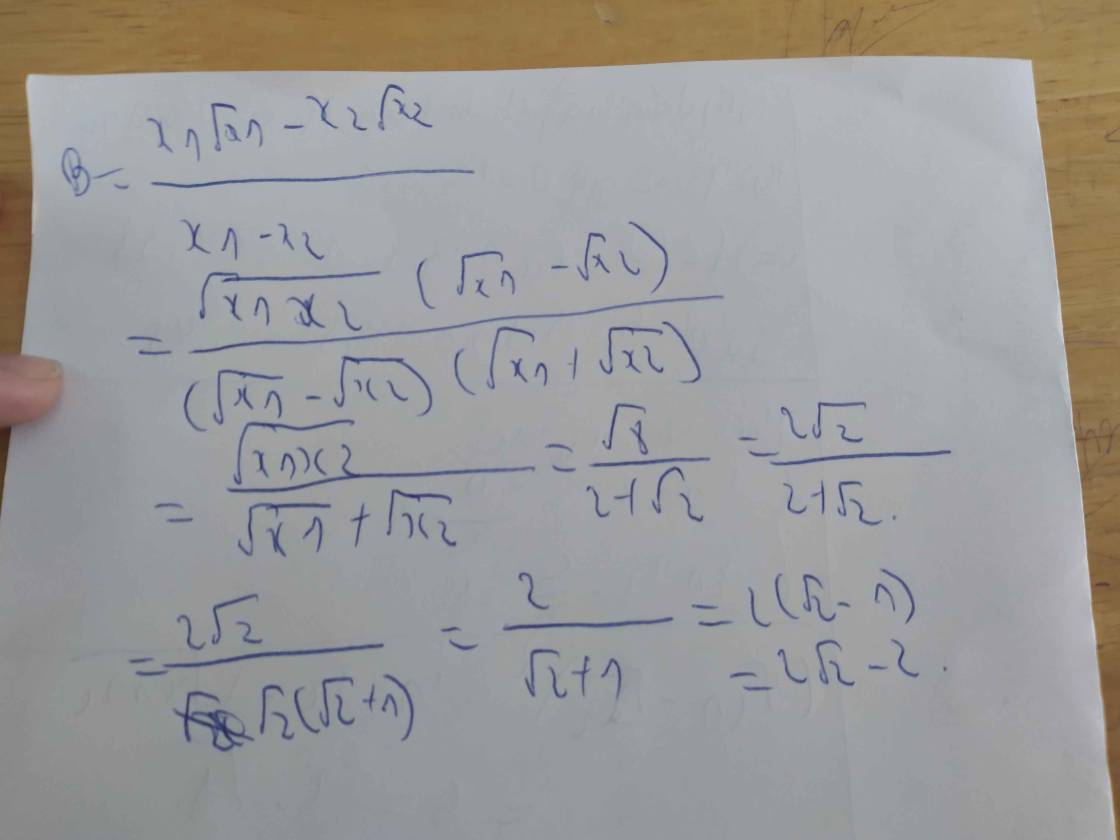 B = \frac{x_1\sqrt{x_1} - x_2\sqrt{x_2}}{x_1 - x_2}
= \frac{\sqrt{x_1 x_2} (\sqrt{x_1} - \sqrt{x_2})}{(\sqrt{x_1} - \sqrt{x_2}) (\sqrt{x_1} + \sqrt{x_2})}
= \frac{\sqrt{x_1 x_2}}{\sqrt{x_1} + \sqrt{x_2}} = \frac{\sqrt{8}}{2+\sqrt{2}} = \frac{2\sqrt{2}}{2+\sqrt{2}}.
= \frac{2\sqrt{2}}{\sqrt{2}(\sqrt{2}+1)} = \frac{2}{\sqrt{2}+1} = 2(\sqrt{2} - 1)
= 2\sqrt{2} - 2.